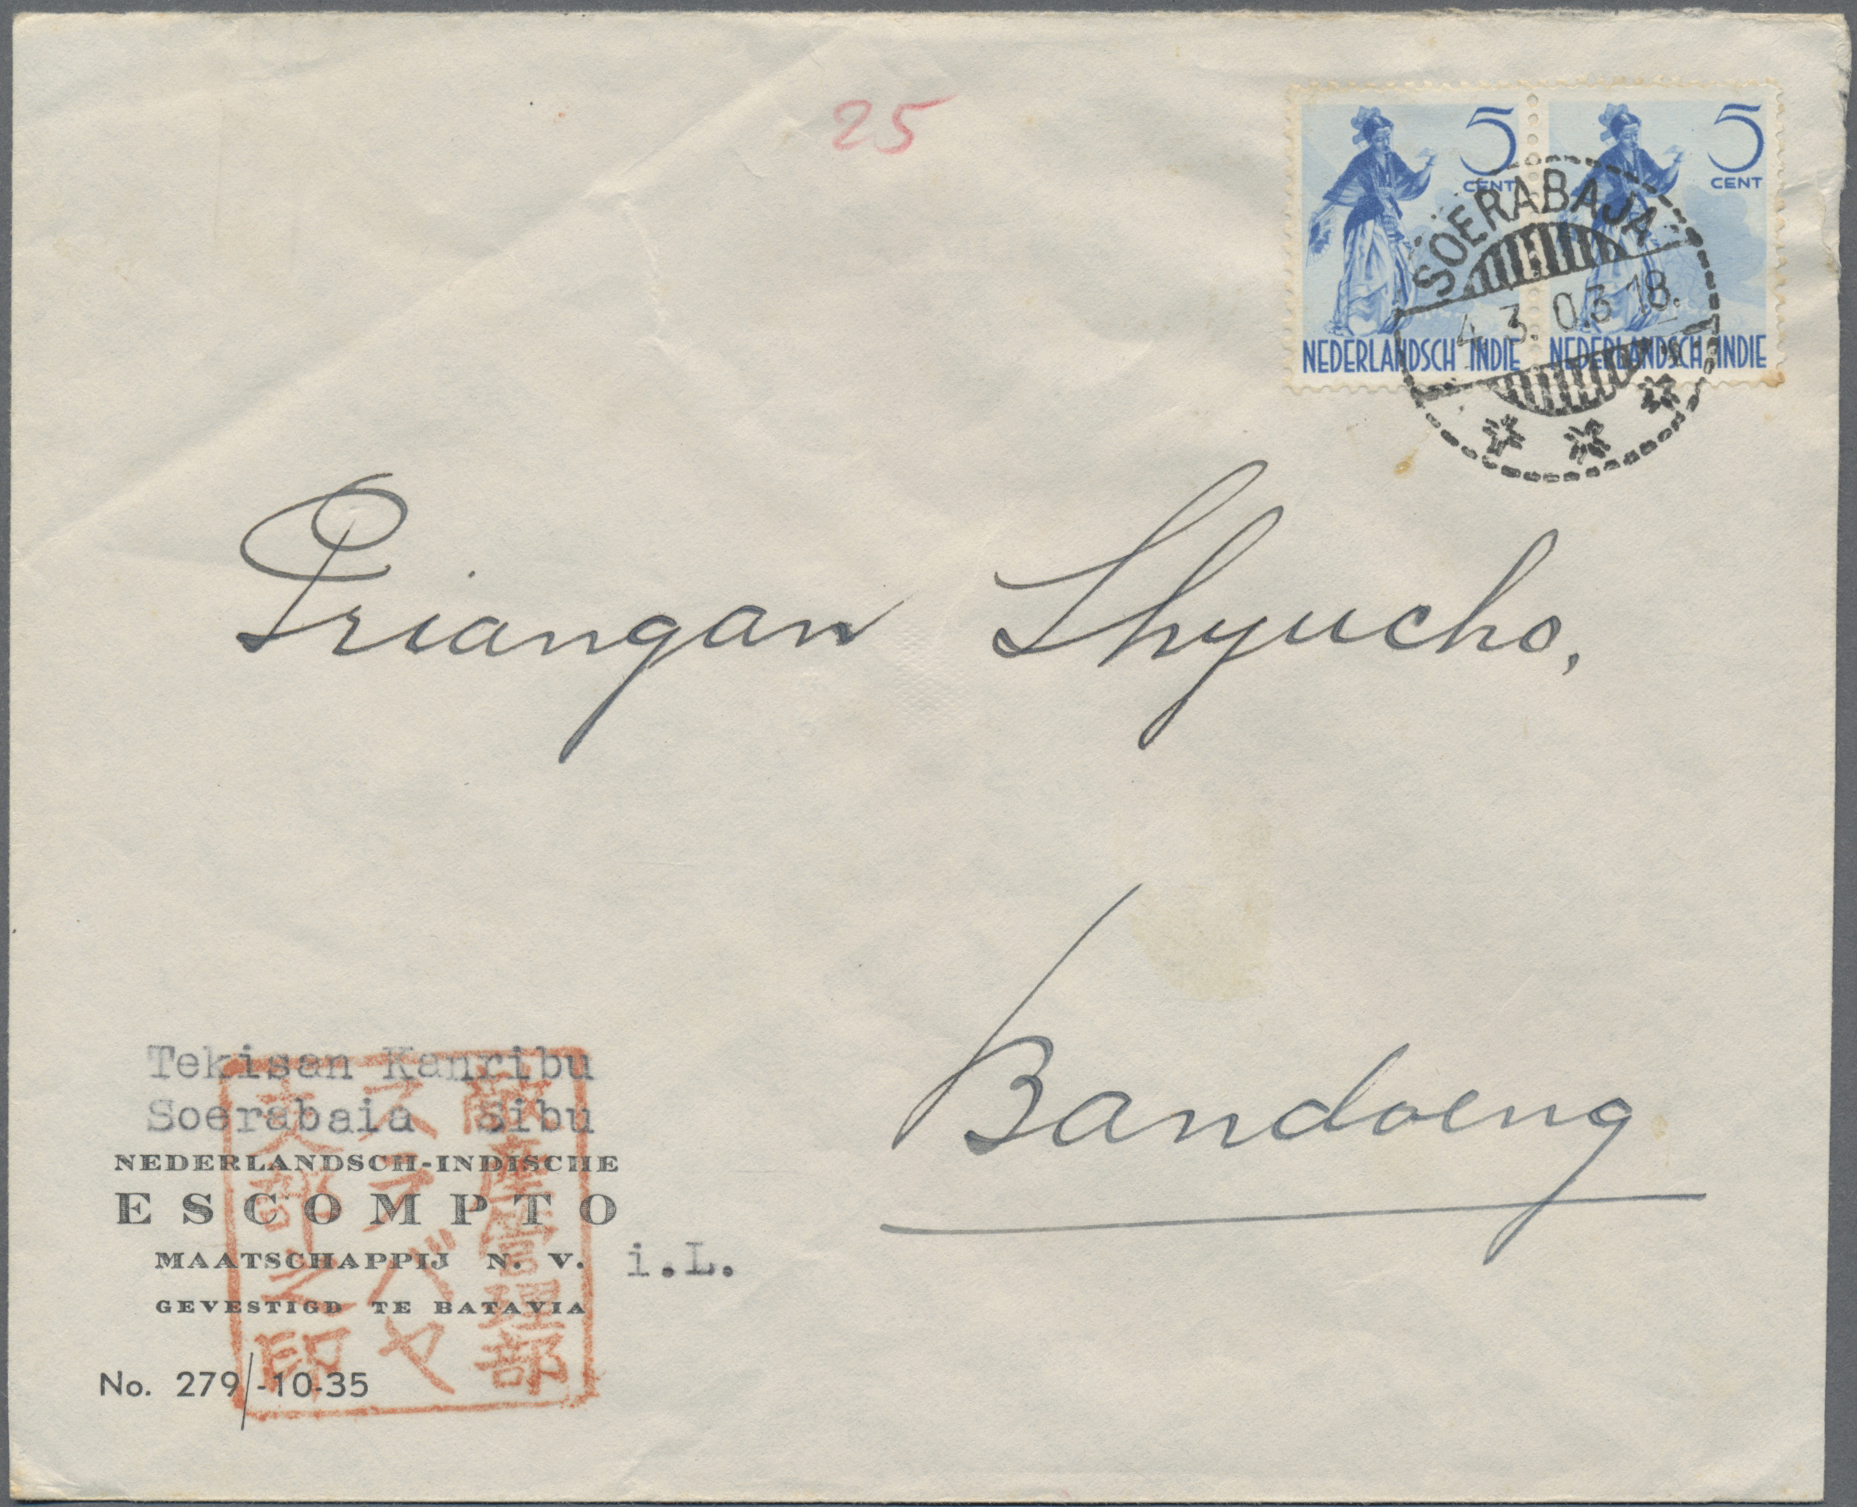 25
5 CENT
NEDERLANDSCH INDIE
5 CENT
NEDERLANDSCH INDIE
SOERABAJA
4.3. 0.3 18.
Priangan Shyucho,
Bandoeng
Tekisan Kanribu
Soerabaia Sibu
NEDERLANDSCH-INDISCHE
ESCOMPTO
MAATSCHAPPIJ N. V. i.L.
GEVESTIGD TE BATAVIA
No. 279/-10-35
敵産管理部
スラバヤ
支部之印